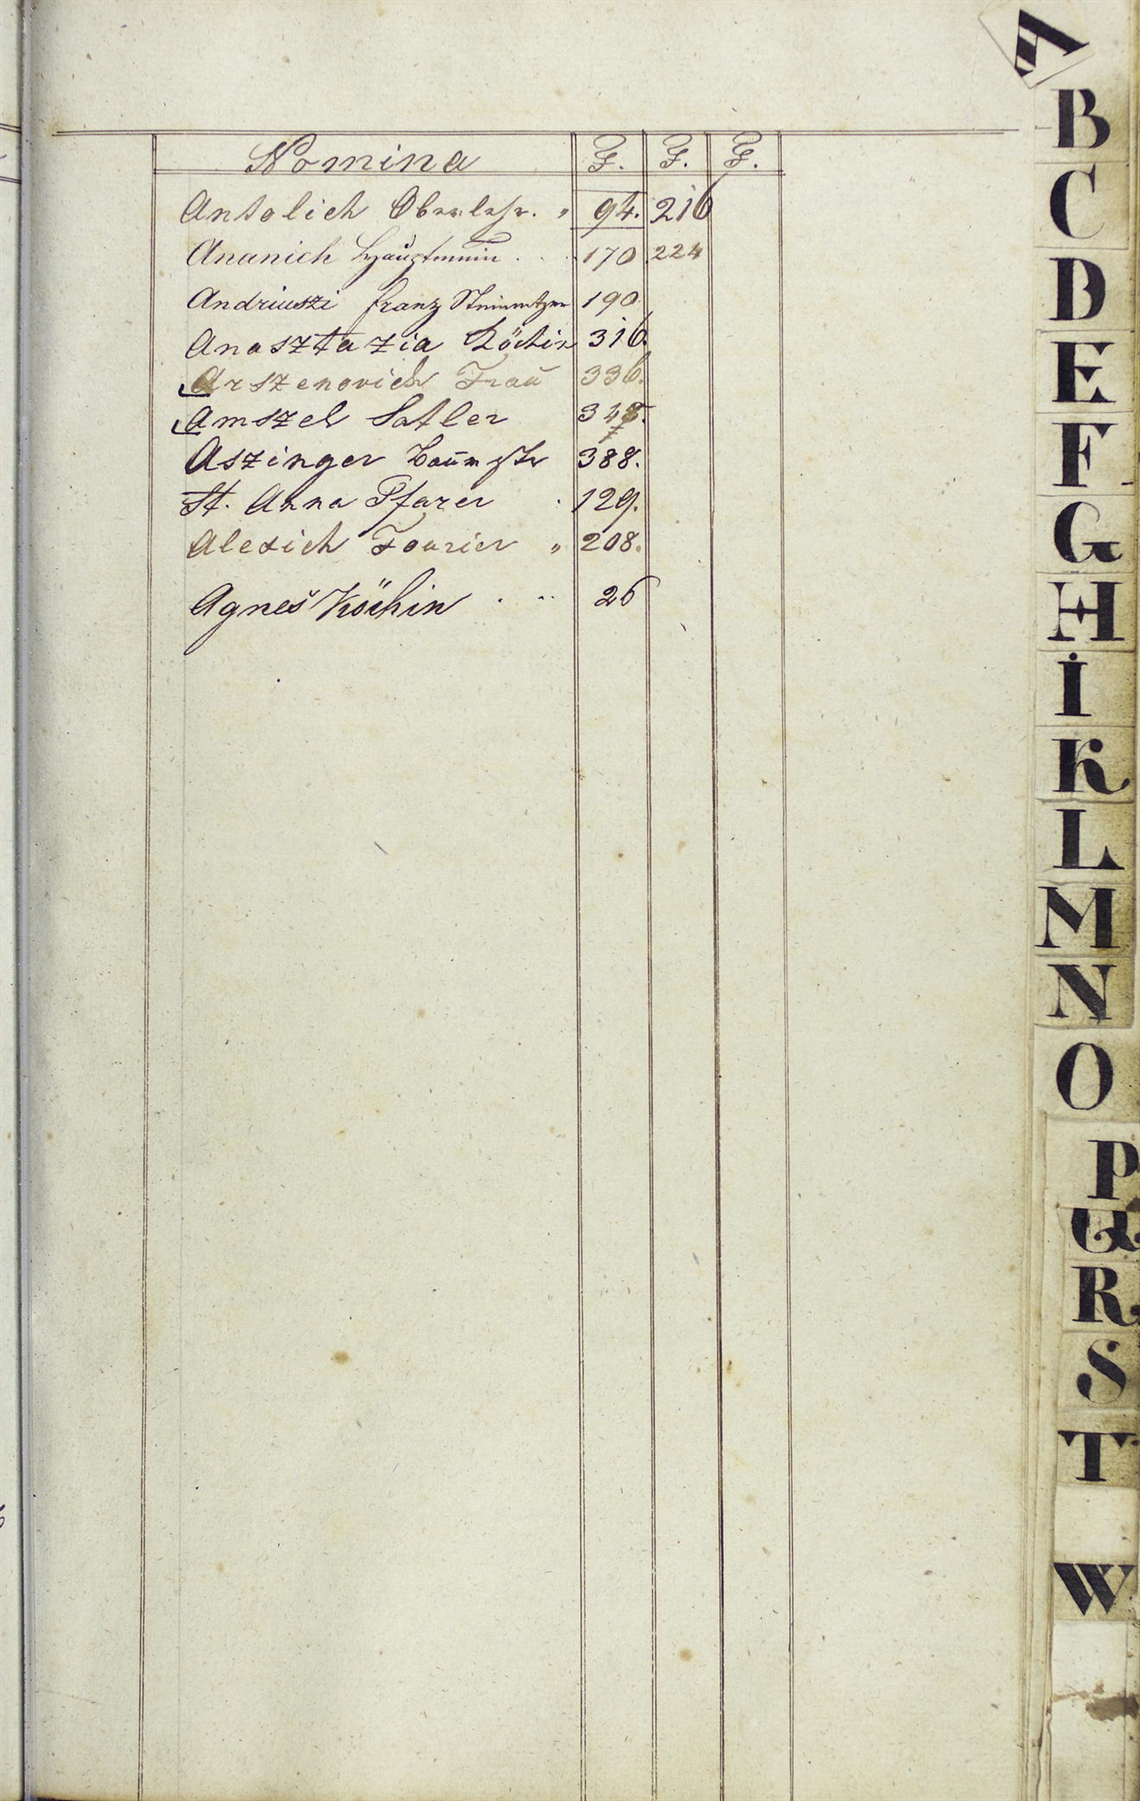 Nomina F. F. F.
Antolich Oberlehr. " 94. 216
Ananich Hauptmann . . . 170 224
Andriuszi Franz Steinmetzer 190
Anasztazia Köchin 316.
Arszenovich Frau 336.
Amszel Satler
Aszinger Baumstr 388.
St. Anna Pfarer . 129.
Alexich Fourier " 208.
Agnes Köchin . .. 26
A
B
C
D
E
F
G
H
I
K
L
M
N
O
P
Q
R
S
T
W